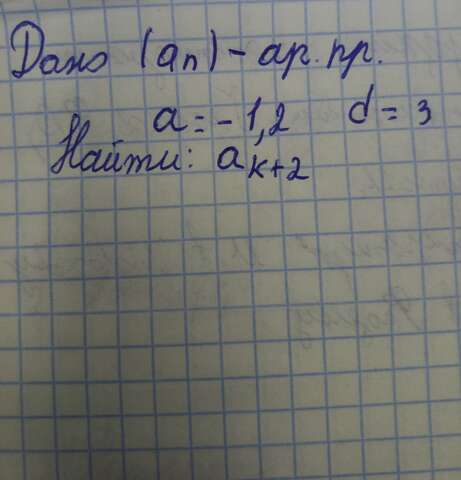 Дано (an) - ар. пр.
a = - 1,2 d = 3
Найти: aк+2